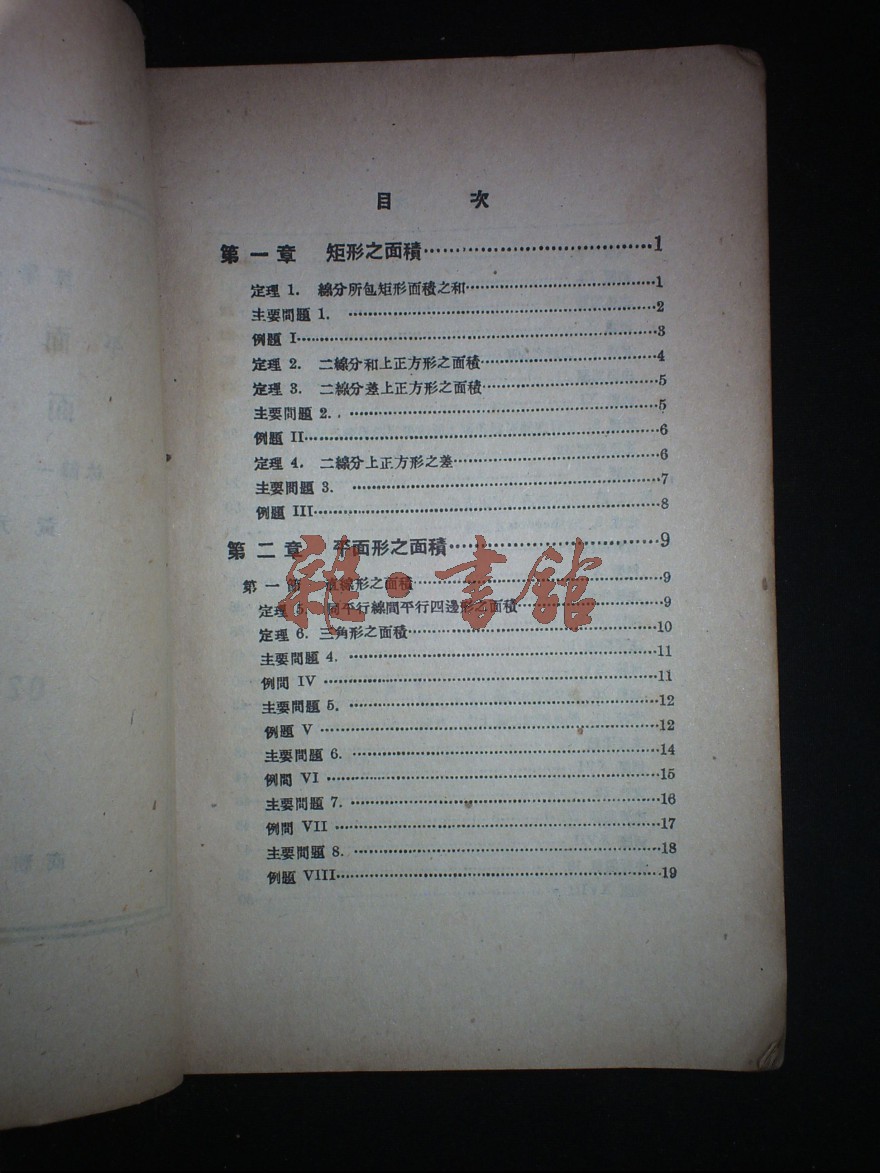 目 次
第一章 矩形之面積……………………………1
定理 1. 線分所包矩形面積之和……………………………1
主要問題 1. ……………………………2
例題 I……………………………3
定理 2. 二線分和上正方形之面積……………………………4
定理 3. 二線分差上正方形之面積……………………………5
主要問題 2. ……………………………5
例題 II……………………………6
定理 4. 二線分上正方形之差……………………………6
主要問題 3. ……………………………7
例題 III……………………………8
第二章 平面形之面積……………………………9
第一節 直線形之面積……………………………9
定理 5. 同平行線間平行四邊形之面積……………………………9
定理 6. 三角形之面積……………………………10
主要問題 4. ……………………………11
例問 IV ……………………………11
主要問題 5. ……………………………12
例題 V ……………………………12
主要問題 6. ……………………………14
例問 VI ……………………………15
主要問題 7. ……………………………16
例問 VII ……………………………17
主要問題 8. ……………………………18
例題 VIII……………………………19
雜·書館